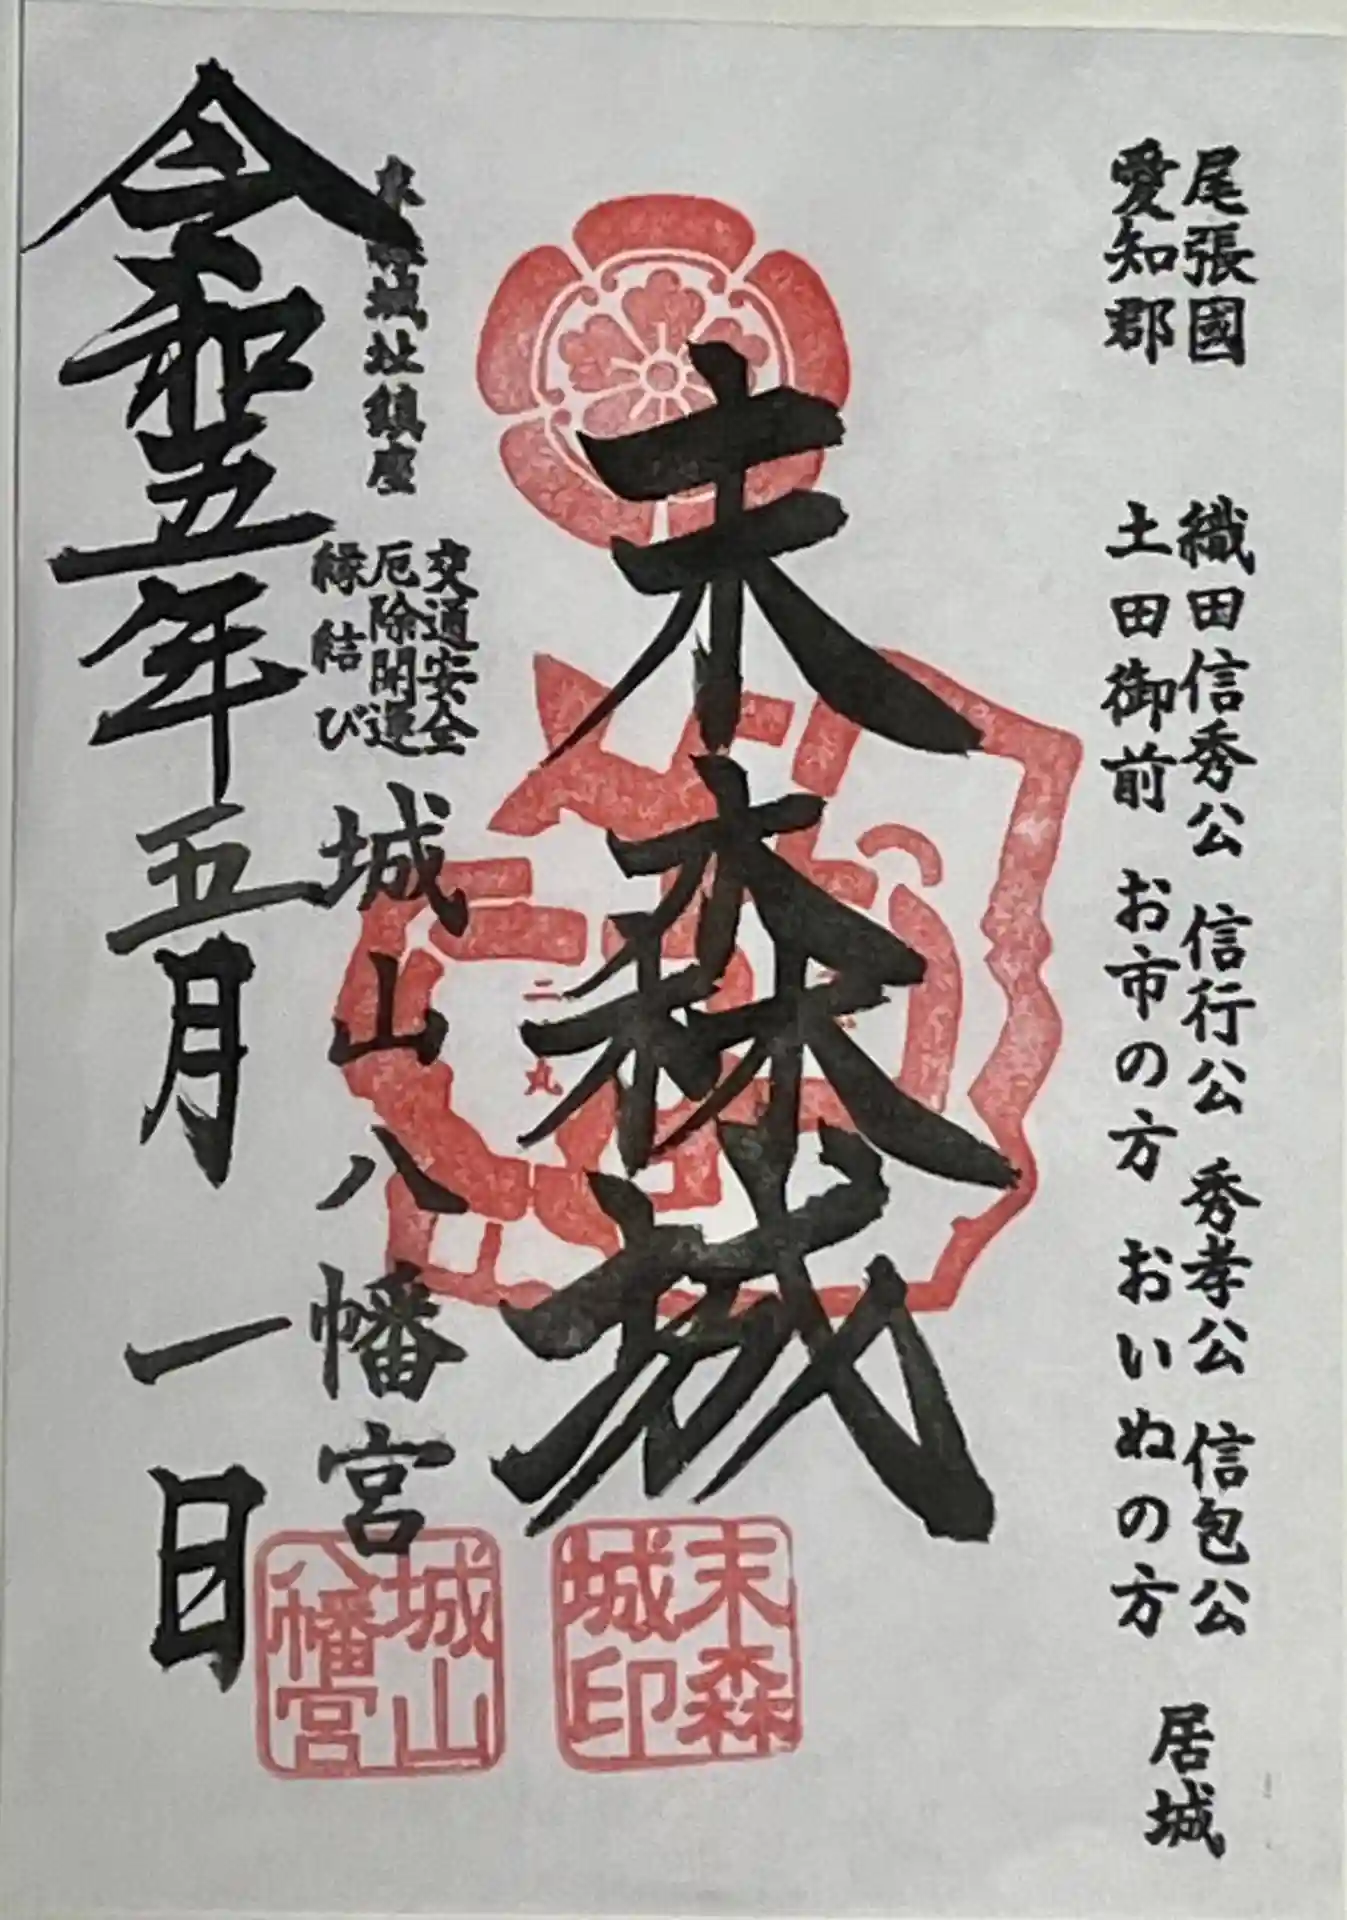 尾張國
愛知郡
織田信秀公 信行公 秀孝公 信包公
土田御前 お市の方 おいぬの方
居城
末森城
二丸
末森
城印
交通安全
厄除開運
縁結び
末森城址鎮座
城山八幡宮
城山
八幡宮
令和五年五月一日